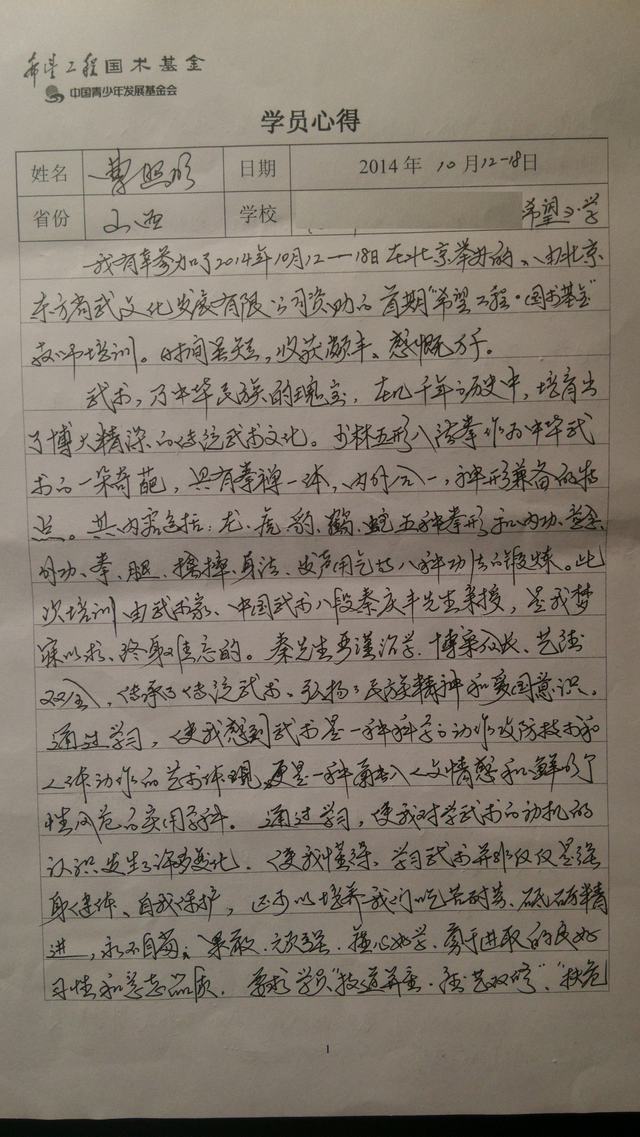 希望工程国术基金
中国青少年发展基金会
学员心得
姓名 曹照明 日期 2014年10月12-18日
省份 山西 学校 希望小学
我有幸参加了2014年10月12—18日在北京举办的、由北京
东方尚武文化发展有限公司资助的首期"希望工程·国术基金"
教师培训。时间虽短,收获颇丰、感慨万千。
武术,乃中华民族的瑰宝,在几千年的历史中,培育出
了博大精深的传统武术文化。少林五形八法拳作为中华武
术的一朵奇葩,具有拳禅一体,内外合一,神形兼备的特
点。其内容包括:龙、虎、豹、鹤、蛇五种拳形和内功、意念、
外功、拳、腿、擒摔、身法、发声用气的八种功法的锻炼。此
次培训由武术家、中国武术八段秦庆丰先生来授,是我梦
寐以求、终身难忘的。秦先生严谨治学、博采众长、艺德
双全,传承了传统武术、弘扬了民族精神和爱国意识。
通过学习,使我感到武术是一种科学的动作攻防技术和
人体动作的艺术体现,更是一种 人文情感和鲜明个
性风范的实用学科。通过学习,使我对学武术的动机的
认识发生了许多变化,使我懂得,学习武术并非仅仅是强
身健体、自我保护,还可以培养我们吃苦耐劳、砥砺精
进,永不自满;果敢、顽强、虚心好学、勇于进取的良好
习性和意志品质。要求学员"技道并重,德艺双修"、"扶危
1